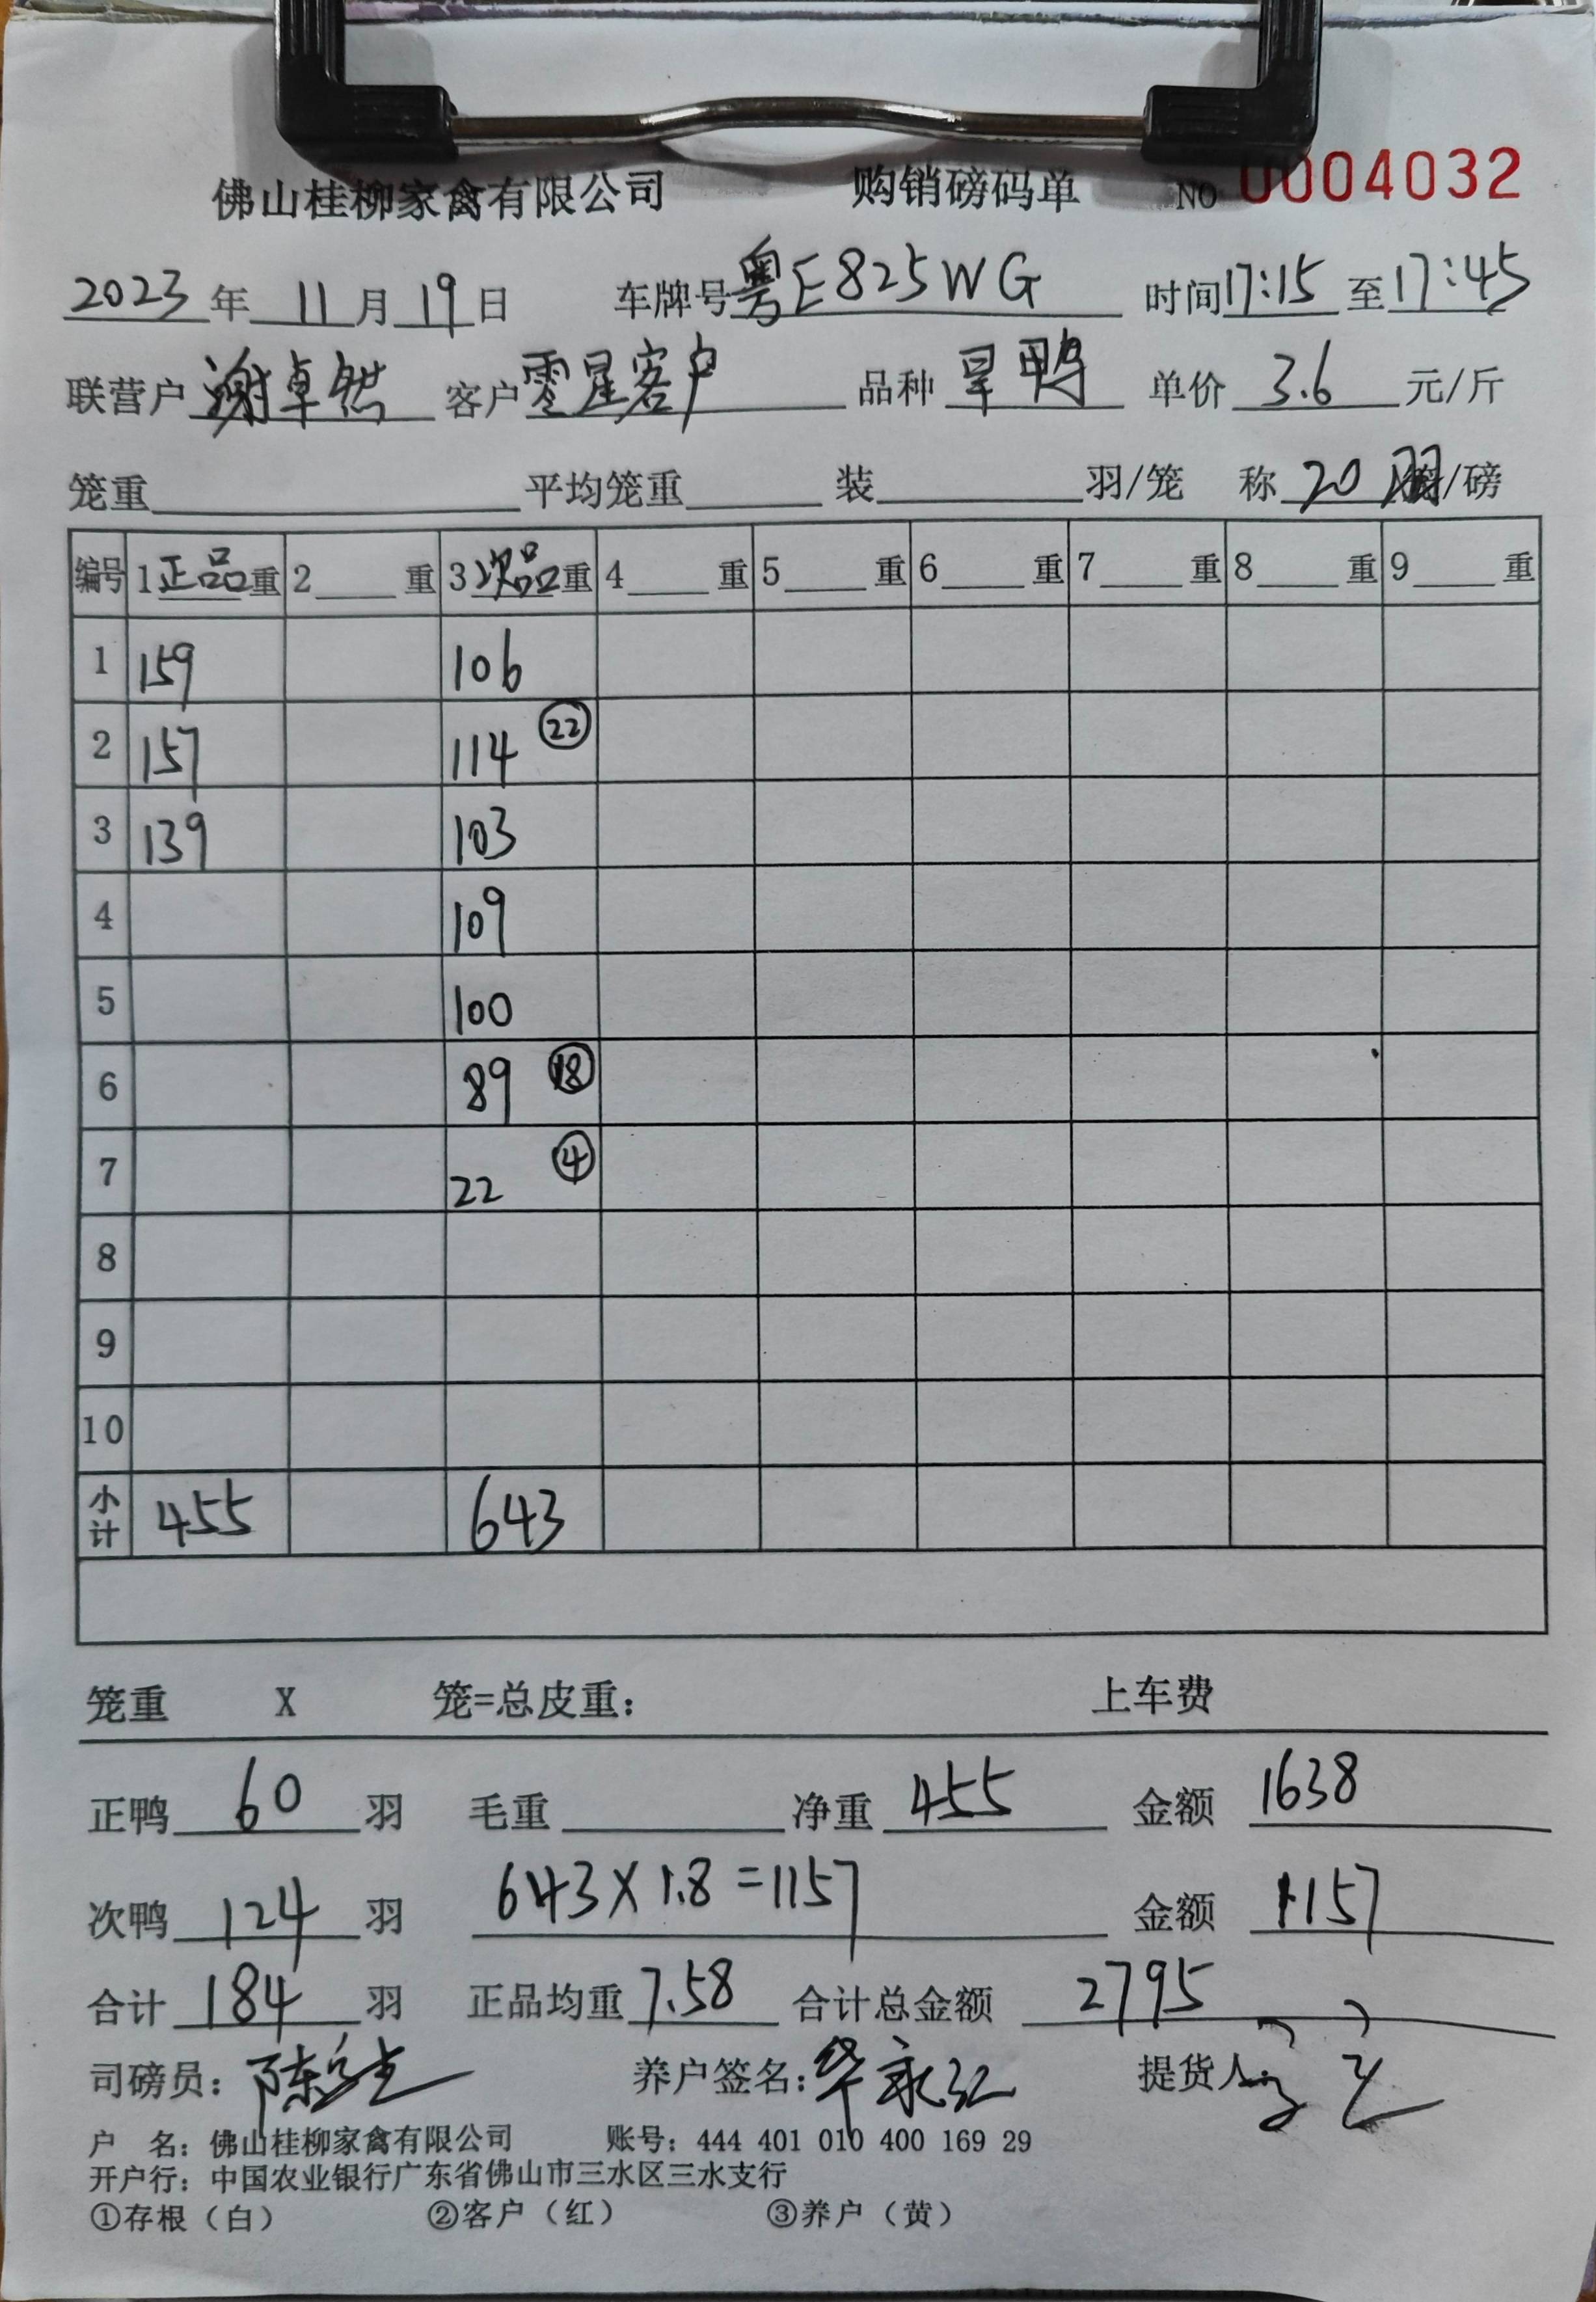 佛山桂柳家禽有限公司 购销磅码单 NO 0004032
2023年11月19日 车牌号粤E825WG 时间17:15至17:45
联营户谢卓铭 客户零星客户 品种旱鸭 单价3.6元/斤
笼重 平均笼重 装 羽/笼 称20羽/磅
编号 1正品重 2 重 3次品重 4 重 5 重 6 重 7 重 8 重 9 重
1 159 106
2 157 114 22
3 139 103
4 109
5 100
6 89 18
7 22 4
8
9
10
小计 455 643
笼重 X 笼=总皮重: 上车费
正鸭60羽 毛重 净重455 金额1638
次鸭124羽 643×1.8=1157 金额1157
合计184羽 正品均重7.58 合计总金额2795
司磅员: 养户签名:华永红 提货人:
户 名: 佛山桂柳家禽有限公司 账号: 444 401 010 400 169 29
开户行: 中国农业银行广东省佛山市三水区三水支行
①存根(白) ②客户(红) ③养户(黄)